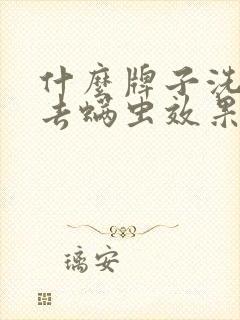 什麽牌子洗
去螨虫效果
璃安